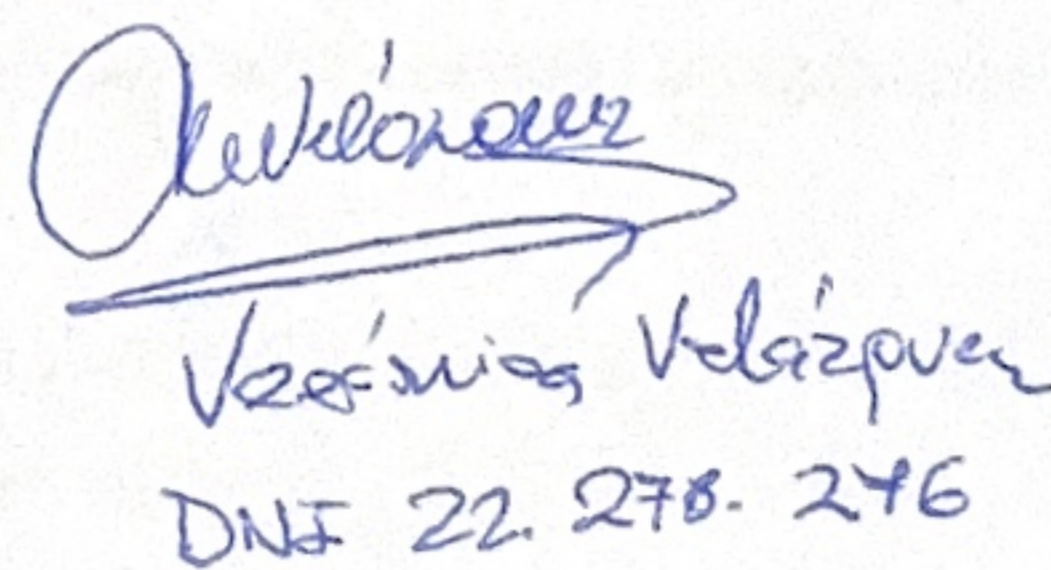 Verónica Velázquez
DNI 22. 278. 276